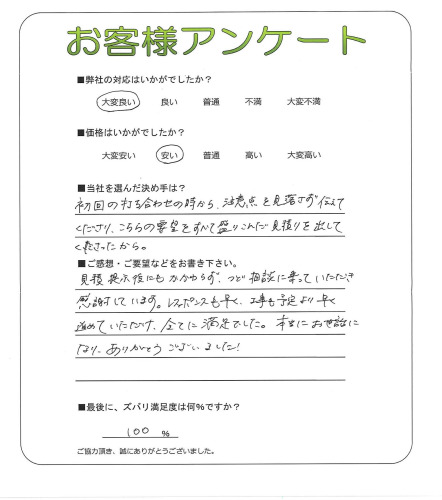 お客様アンケート
■弊社の対応はいかがでしたか？
大変良い 良い 普通 不満 大変不満
■価格はいかがでしたか？
大変安い 安い 普通 高い 大変高い
■当社を選んだ決め手は？
初回の打ち合わせの時から、注意点を見落さず伝えて
くださり、こちらの要望をすべて盛りこんだ見積りを出して
くださったから。
■ご感想・ご要望などをお書き下さい。
見積提示後にもかかわらず、つど相談に乗っていただき
感謝しています。レスポンスも早く、工事も予定より早く
進めていただけ、全てに満足でした。本当にお世話に
なり、ありがとうございました！
■最後に、ズバリ満足度は何％ですか？
100 ％
ご協力頂き、誠にありがとうございました。